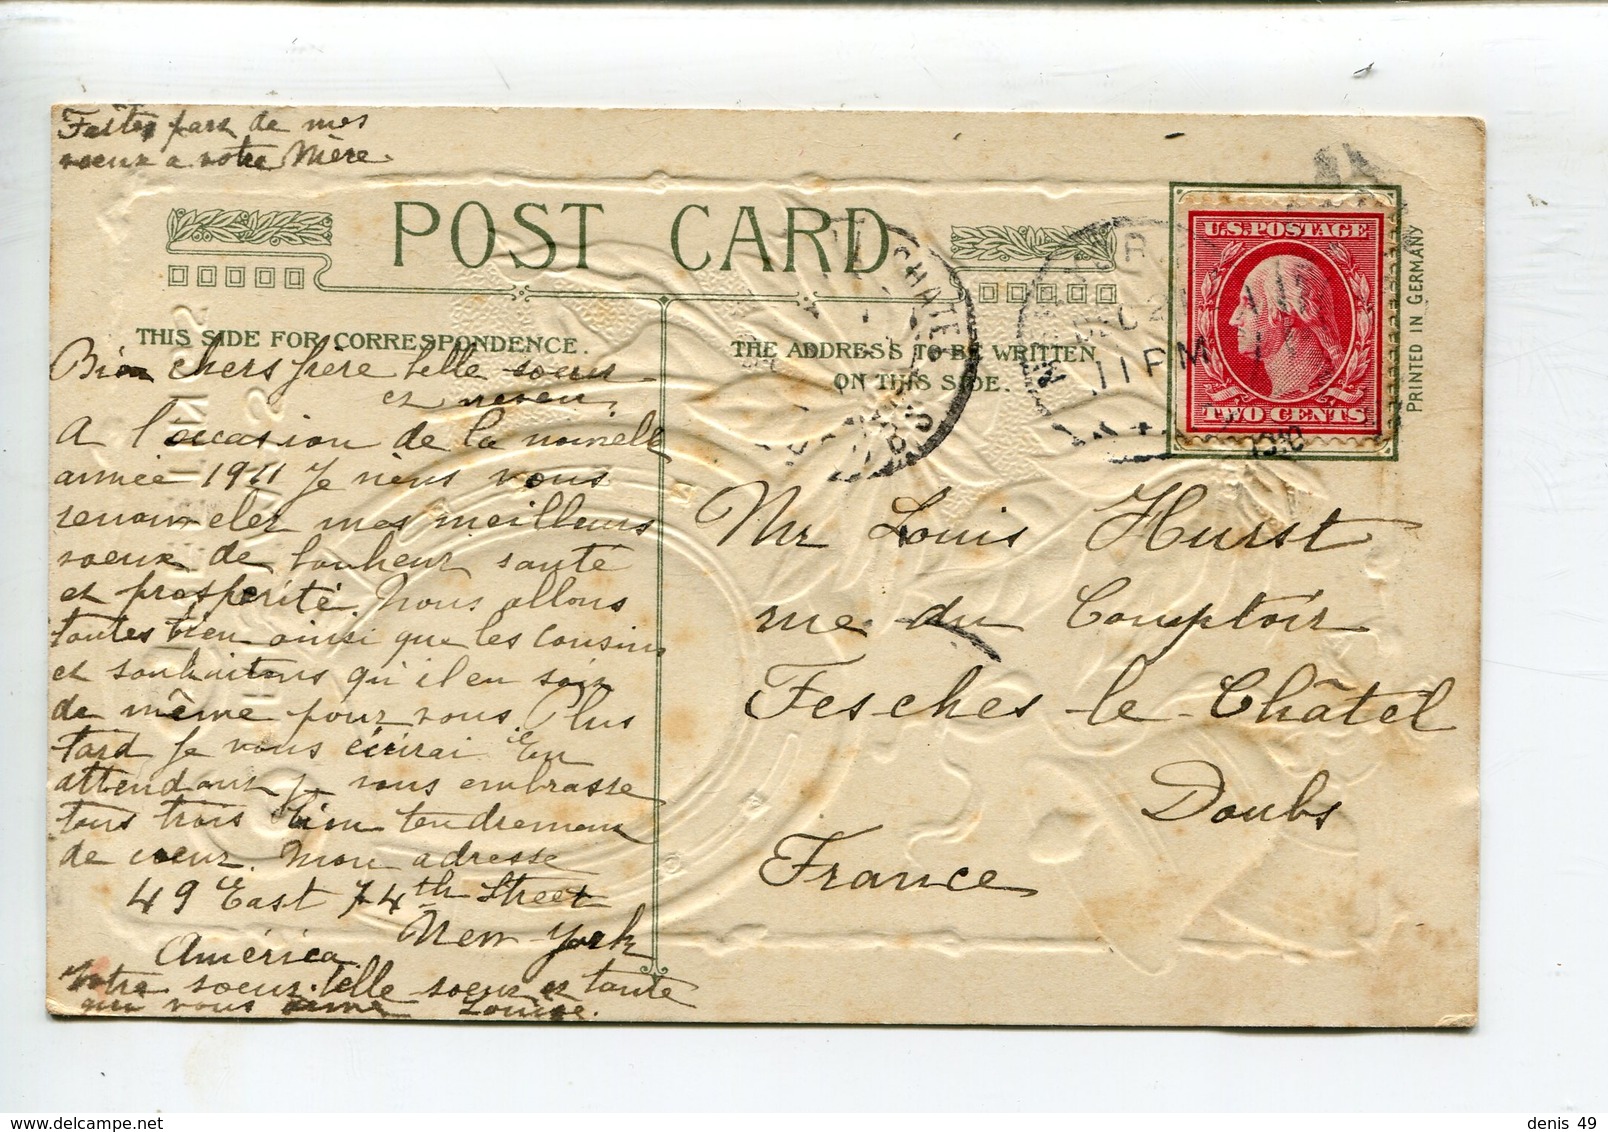 Faites part de mes
voeux a votre Mère.
POST CARD
THIS SIDE FOR CORRESPONDENCE.
THE ADDRESS TO BE WRITTEN
ON THIS SIDE.
PRINTED IN GERMANY
U.S. POSTAGE
TWO CENTS
11 PM
1910
CHATEL
Bien chers frère belle soeur
et neveu
A l'occasion de la nouvelle
année 1911 Je viens vous
renouveler mes meilleurs
voeux de bonheur santé
et prospérité. Nous allons
toutes bien ainsi que les cousins
et souhaitons qu'il en soit
de même pour vous. Plus
tard Je vous écrirai. En
attendant je vous embrasse
tous trois bien tendrement
de coeur. Mon adresse
49 East 74th Street
New York
América
Votre soeur, belle soeur et tante
qui vous aime Louise.
Mr Louis Hurst
rue du Comptoir
Fesches-le-Châtel
Doubs
France
denis 49